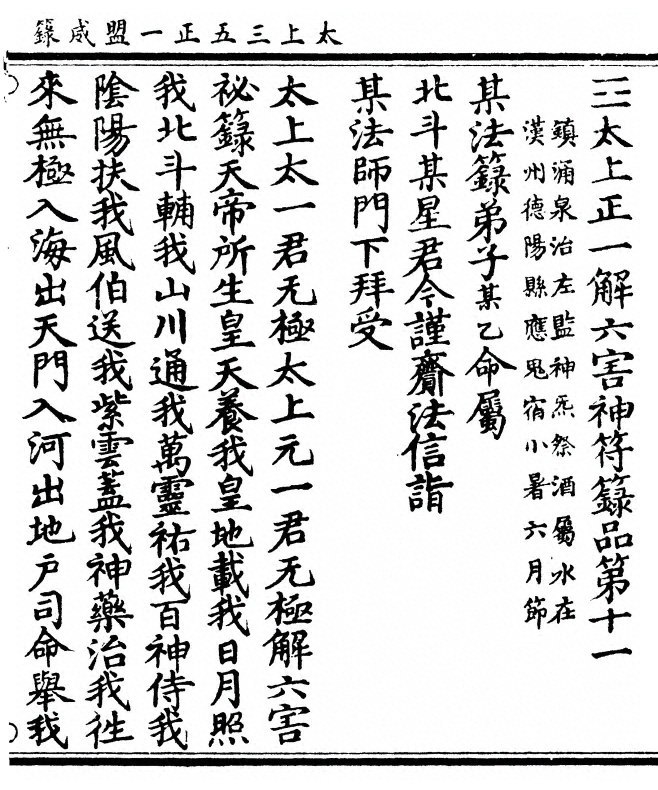 太上三五正一盟威籙
三太上正一解六害神符籙品第十一
鎮涌泉治左監神炁祭酒屬水在
漢州德陽縣應鬼宿小暑六月節
某法籙弟子某乙命屬
北斗某星君今謹齎法信詣
某法師門下拜受
太上太一君无極太上元一君无極解六害
祕籙天帝所生皇天養我皇地載我日月照
我北斗輔我山川通我萬靈祐我百神侍我
陰陽扶我風伯送我紫雲蓋我神藥治我徃
來無極入海出天門入河出地戶司命舉我